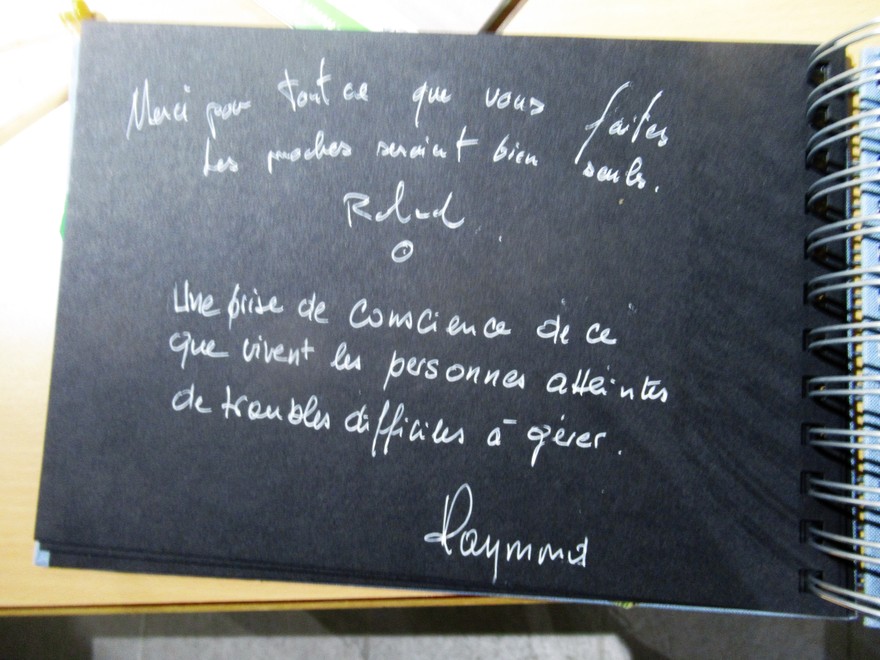 Merci pour tout ce que vous faites
Les proches seraient bien seuls.
Roland
Une prise de conscience de ce
que vivent les personnes atteintes
de troubles difficiles à gérer.
Raymond